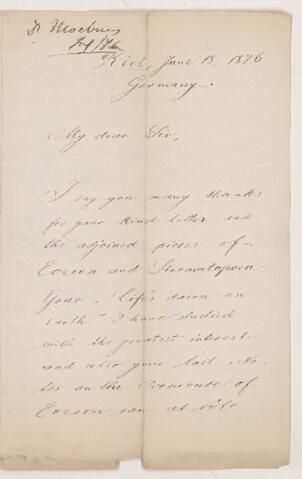 Dr Moebius
Kiel, June 13, 1876
Germany.
My dear Sir,
I say you many thanks
for your kind letter and
the adjoined pieces of
Eozoon and Stromatopora
Your „Life's dawn on
earth" I have studied
with the greatest interest
and also your last no-
tes on the
Eozoon